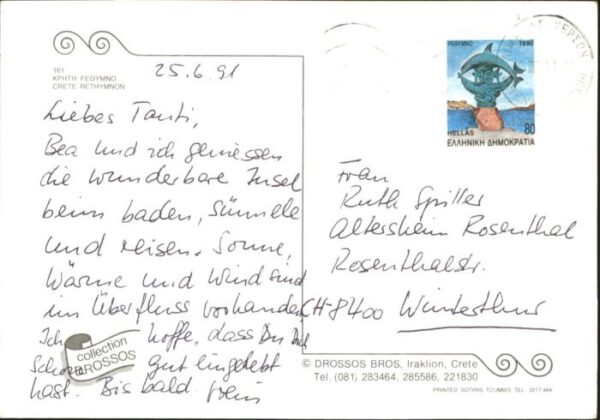 161
ΚΡΗΤΗ ΡΕΘΥΜΝΟ
CRETE RETHYMNON
25.6.91
Liebes Tanti,
Bea und ich geniessen
die wunderbare Insel
beim baden, sünnele
und reisen. Sonne,
Wärme und Wind sind
im Überfluss vorhanden
Ich hoffe, dass Du Dich
schon gut eingelebt
hast. Bis bald
collection
DROSSOS
ΡΕΘΥΜΝΟ 1990
HELLAS 80
ΕΛΛΗΝΙΚΗ ΔΗΜΟΚΡΑΤΙΑ
Frau
Ruth Spiller
Altersheim Rosenthal
Rosenthalstr.
CH-8400 Winterthur
© DROSSOS BROS, Iraklion, Crete
Tel: (081) 283464, 285586, 221830
PRINTED SOTIRIS TOUMBIS TEL. 3217-464